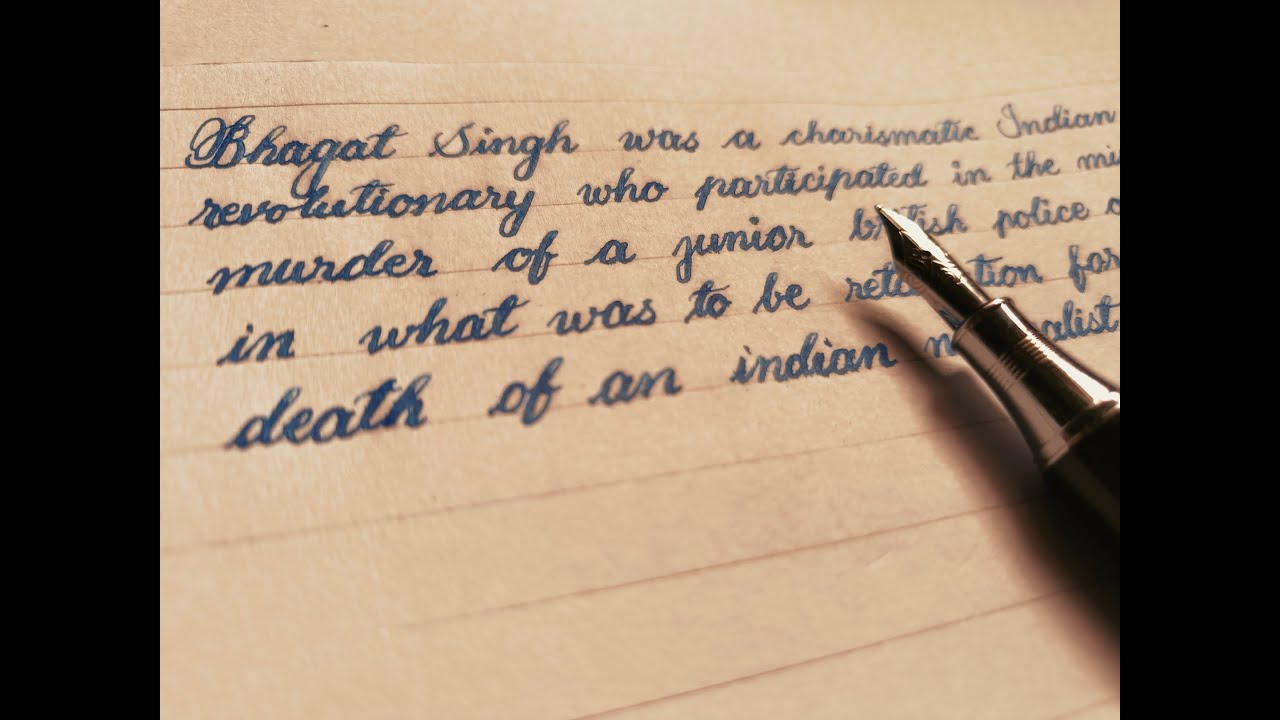 Bhagat Singh was a charismatic Indian
revolutionary who participated in the
murder of a junior police
in what was to be for
death of an indian